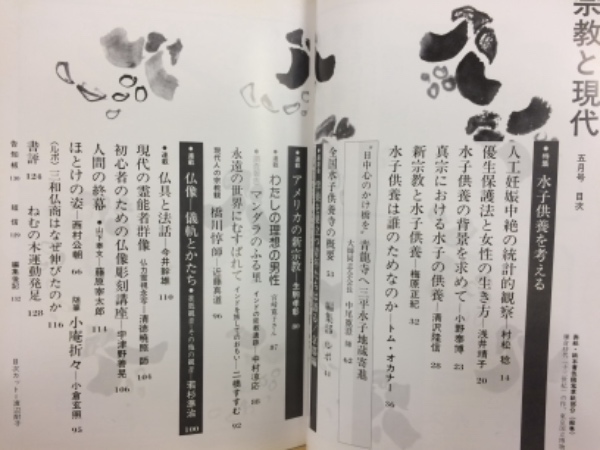 宗教と現代
五月号 目次
●特集 水子供養を考える
人工妊娠中絶の統計的観察―村松 稔 14
優生保護法と女性の生き方―浅井靖子 20
水子供養の背景を求めて―小野泰博 23
真宗における水子の供養―清沢隆信 28
新宗教と水子供養―梅原正紀 32
水子供養は誰のためなのか―トム・オカナー 56
"日中心のかけ橋を"
青龍寺へ三平水子地蔵寄進
62
全国水子供養寺の概要 51
編集部
●連載 アメリカの新宗教―生駒孝彰 80
●連載 わたしの理想の男性
87
マンダラのふる里
中村涼応 88
永遠の世界にむすばれて
二橋すすむ 92
現代人の宗教観
橋川惇師―近藤真道 96
●連載 仏像―儀軌とかたち
若杉準治 100
●連載 仏具と法話―今井幹雄 110
現代の霊能者群像
清徳暁照 師 104
初心者のための仏像彫刻講座―宇津野善晃 106
人間の終幕
藤原幸太郎 114
ほとけの姿―西村公朝 66
随筆 小庵折々―小倉玄照 95
〈ルポ〉三和仏商はなぜ伸びたのか 116
書評 124
ねむの木運動発足 128
告知板 130
編集後記 132
目次カット―渡辺明子